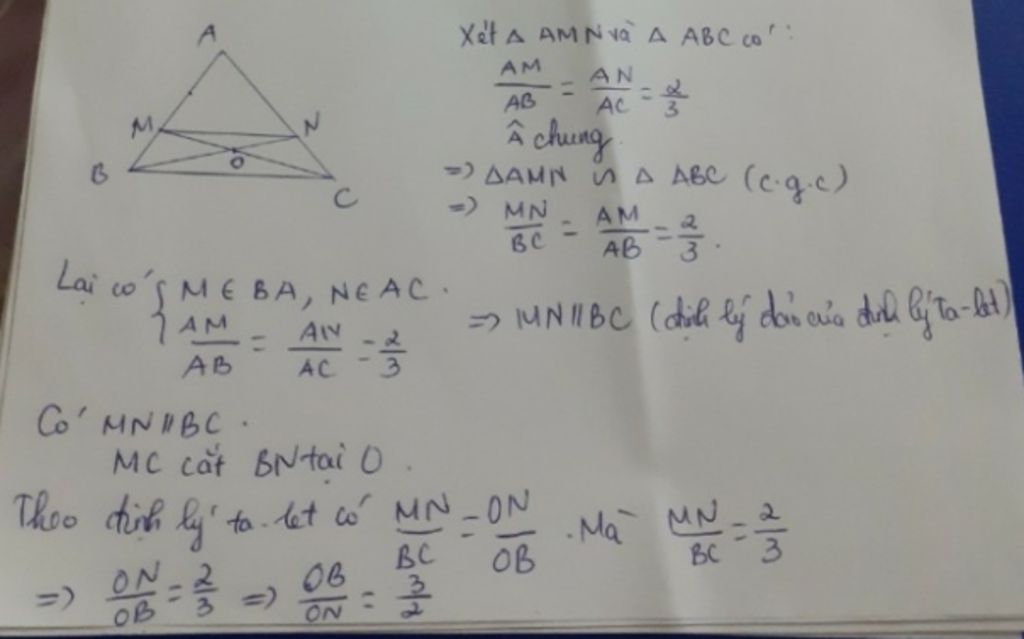 A
M
N
O
B
C
Xét Δ AMN và Δ ABC có:
AM/AB = AN/AC = 2/3
Â chung.
=> ΔAMN ∽ Δ ABC (c.g.c)
=> MN/BC = AM/AB = 2/3.
Lại có { M ∈ BA, N ∈ AC.
AM/AB = AN/AC = 2/3
=> MN // BC (định lý đảo của định lý Ta-let)
Có MN // BC.
MC cắt BN tại O.
Theo định lý ta-let có MN/BC = ON/OB. Mà MN/BC = 2/3
=> ON/OB = 2/3 => OB/ON = 3/2